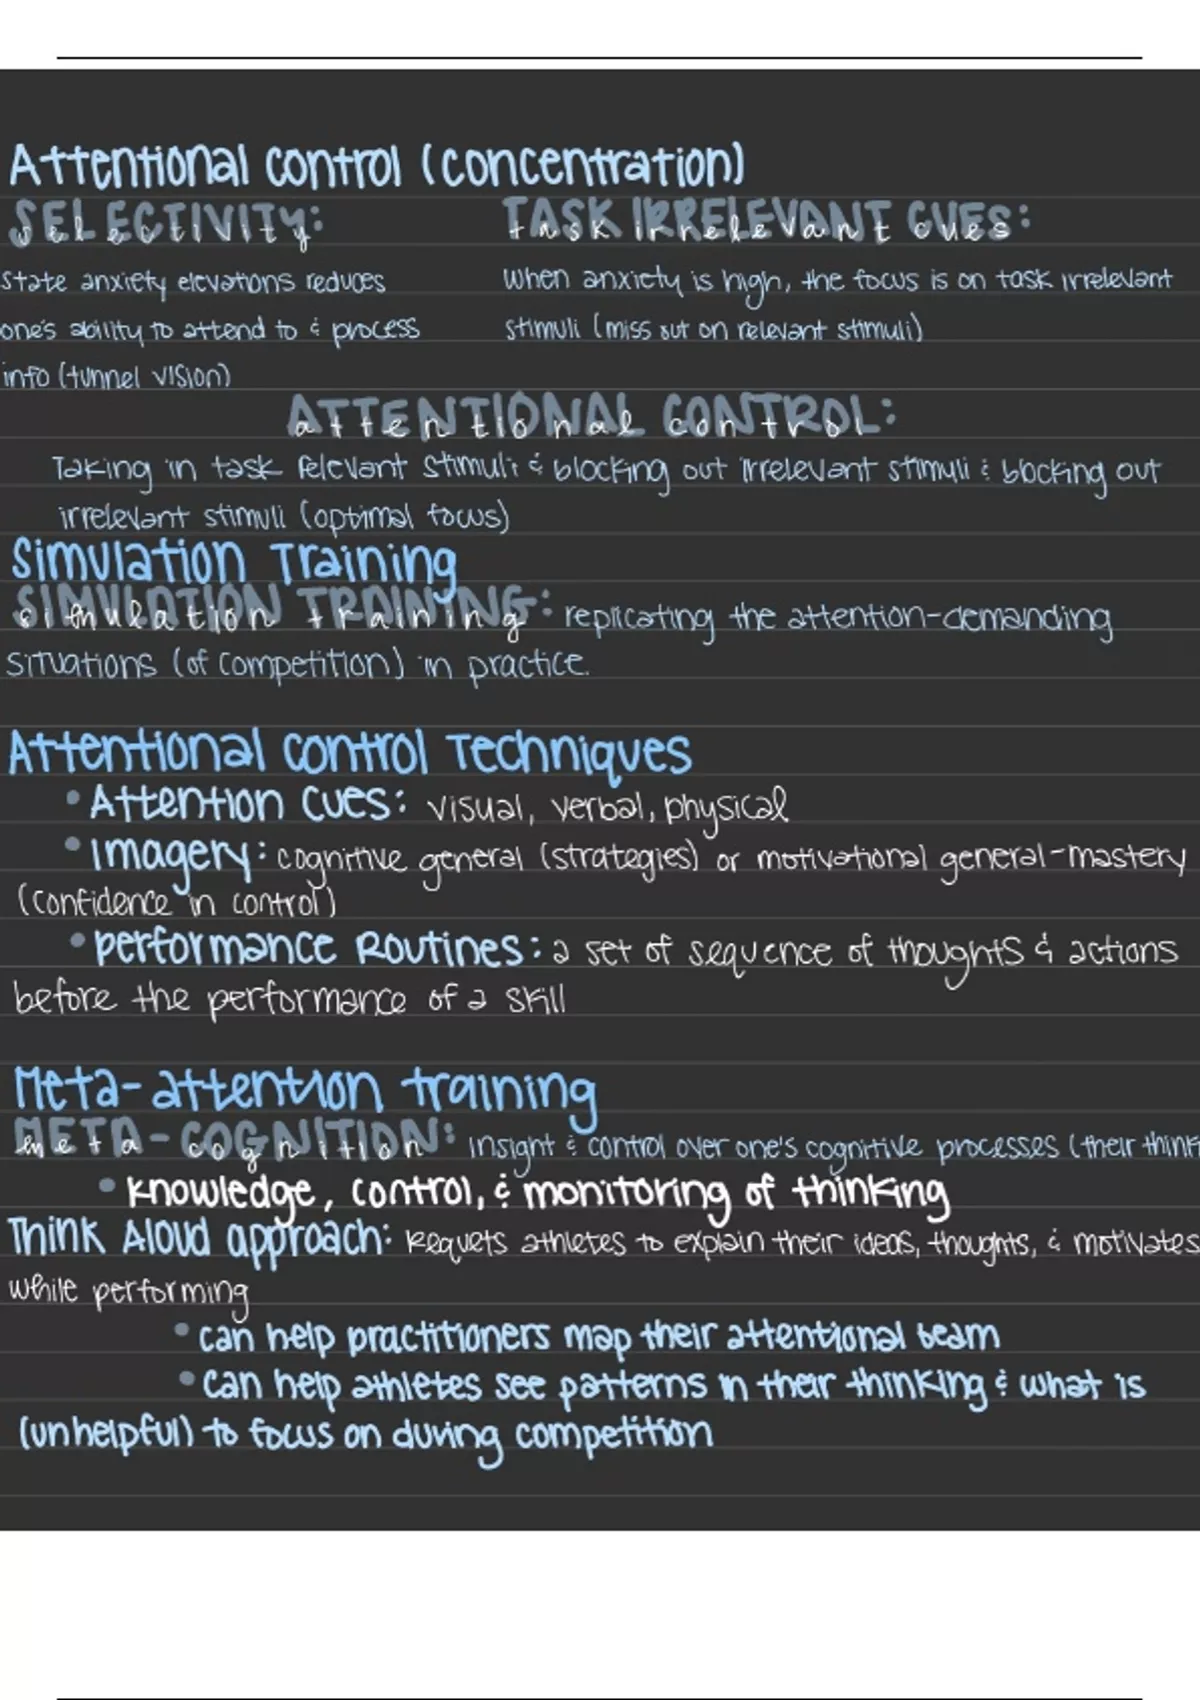 Attentional control (concentration)
SELECTIVITY:
selectivity
TASK IRRELEVANT CUES:
task irrelevant cues
State anxiety elevations reduces
one's ability to attend to & process
info (tunnel vision)
When anxiety is high, the focus is on task irrelevant
stimuli (miss out on relevant stimuli)
ATTENTIONAL CONTROL:
attentional control
Taking in task relevant stimuli & blocking out irrelevant stimuli & blocking out
irrelevant stimuli (optimal focus)
Simulation Training
SIMULATION TRAINING: replicating the attention-demanding
simulation training
situations (of competition) in practice.
Attentional control Techniques
• Attention Cues: visual, verbal, physical
• Imagery: cognitive general (strategies) or motivational general-mastery
(confidence in control)
• performance Routines: a set of sequence of thoughts & actions
before the performance of a skill
Meta-attention training
META-COGNITION: insight & control over one's cognitive processes (their think
meta cognition
• knowledge, control, & monitoring of thinking
Think Aloud approach: Requets athletes to explain their ideas, thoughts, & motivates
while performing
• can help practitioners map their attentional beam
• can help athletes see patterns in their thinking & what is
(unhelpful) to focus on during competition